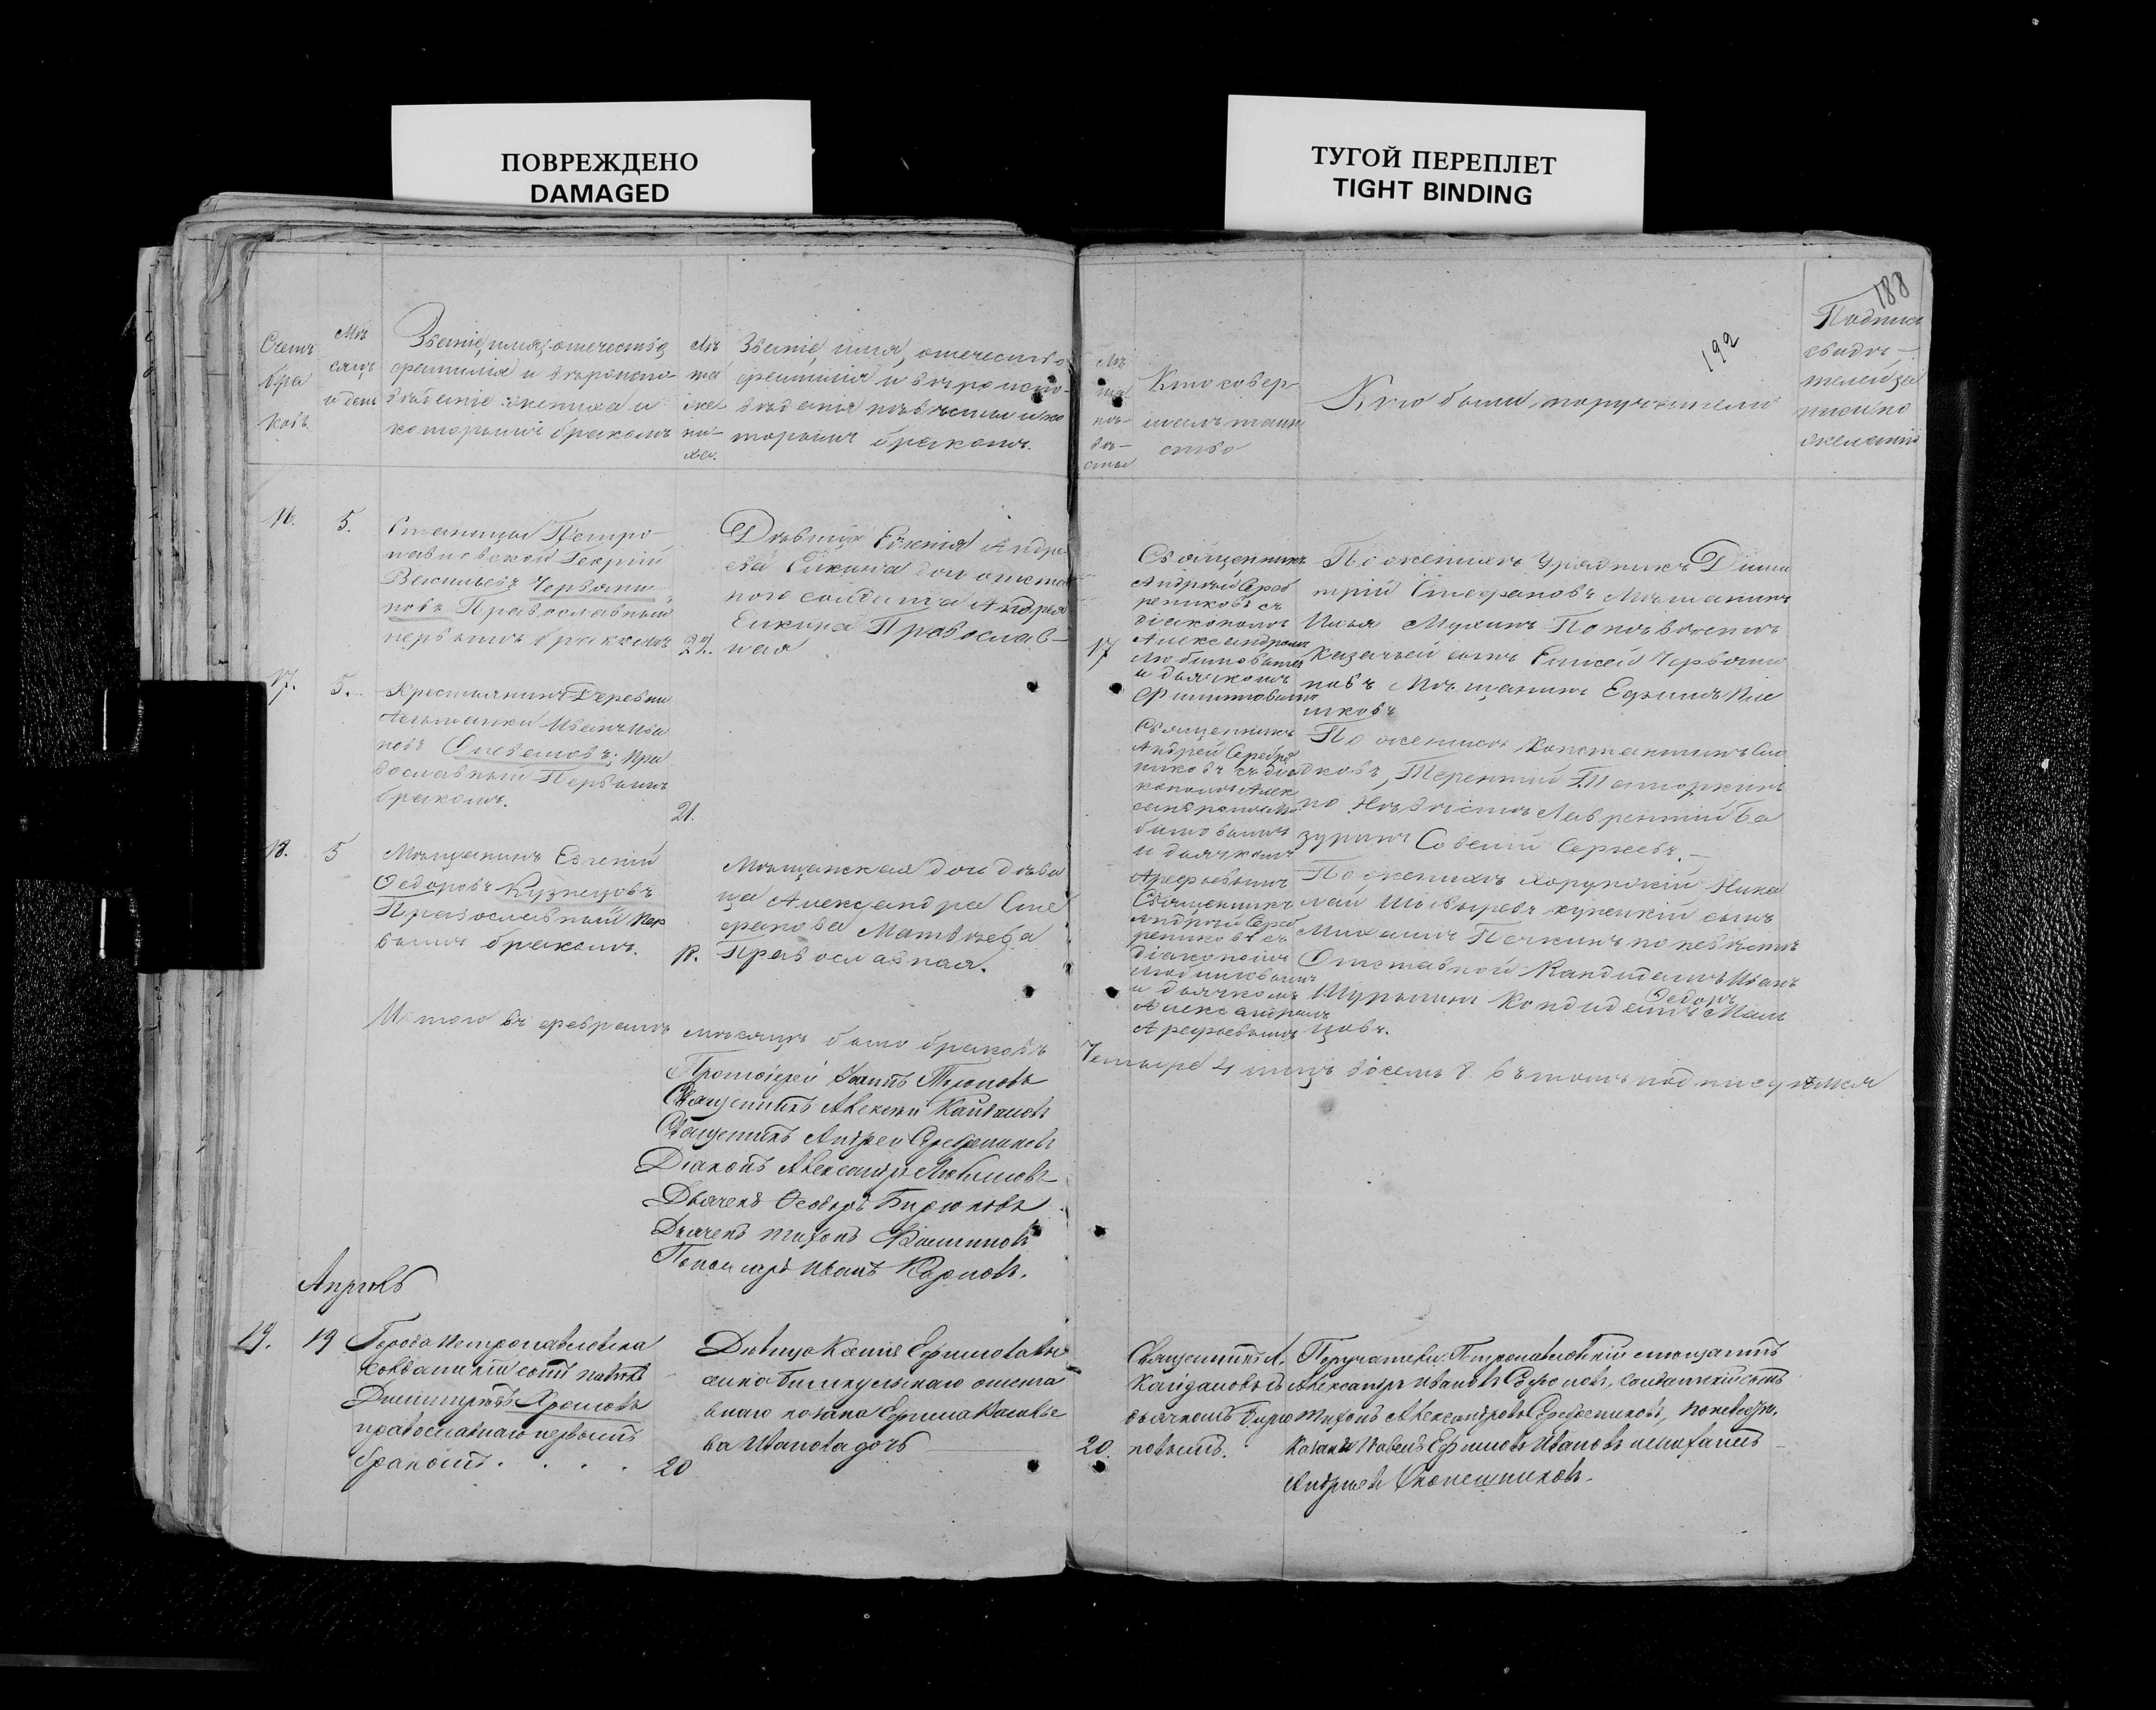 ПОВРЕЖДЕНО
DAMAGED
ТУГОЙ ПЕРЕПЛЕТ
TIGHT BINDING
188
192
Счетъ
бра
ковъ
Мѣ
сяцъ
и день
Званіе, имя, отечество,
фамилія и вѣроиспо
вѣданіе жениха и
которымъ бракомъ
Лѣ
та
же
ни-
ха.
Званіе, имя, отечество
фамилія и вѣроиспо-
вѣданія невѣсты и ко
торымъ бракомъ.
Лѣ
та
не-
вѣ-
сты
Кто совер-
шалъ таин
ство
Кто были поручители
Подписи
свидѣ-
телей за
писи по
желанію
16.
5.
Станицы Петро-
павловской Георгій
Васильевъ Червяни
новъ Православный
первымъ бракомъ
22.
Дѣвица Евгенія Андре
ева Елкина дочь отста
ного солдата Андрея
Елкина Православ-
ная
17
Священникъ
Андрей Сереб
рениковъ съ
діакономъ
Александромъ
Любимовымъ
и дьячкомъ
По женихѣ Урядникъ Дими
трій Стефановъ Мѣщанинъ
Илья Мухинъ По невѣстѣ
Казачей сынъ Елисей Червяни
новъ Мѣщанинъ Ефимъ Пле
шковъ
17.
5.
Крестьянинъ Деревни
Иванъ Ива
новъ
; пра
вославный Первымъ
бракомъ.
21.
Священникъ
Андрей Серебре
никовъ съ діа
кономъ Алек
сандромъ Лю
бимовымъ
и дьячкомъ
Арефьевымъ
По женихѣ Константинъ Сла
дковъ, Терентій
по Невѣстѣ Лаврентій Ба
зуринъ Савелій Сергеевъ.
18.
5
Мѣщанинъ Евгеній
Федоровъ Кузнецовъ
Православный пер
вымъ бракомъ.
18.
Мѣщанская дочь дѣви
ца Александра Сте
фанова Матвѣева
Православная.
Священникъ
Андрей Сереб
рениковъ съ
діакономъ
и дьячкомъ
Александромъ
Арефьевымъ
По женихѣ Хорунжій Нико
лай Шевыревъ купецкій сынъ
Михаилъ Печкинъ по невѣстѣ
Отставной Кандидатъ Иванъ
Шурыгинъ Кондидатъ Федоръ Маль
цовъ.
Итого въ февралѣ мѣсяцѣ было браковъ
Четыре 4 лицъ восемь 8. въ томъ подписуемся
Протоіерей Іоаннъ Тюмовъ
Священникъ Алексѣй Кайдаловъ
Священникъ Андрей Серебрениковъ
Діаконъ Александръ Любимовъ
Дьячекъ Ѳеодоръ Бирюковъ
Дьячекъ Тихонъ
Пономарь Иванъ Карповъ.
Апрѣль
19.
19
Города Петропавловска
солдатскій сынъ Павелъ
Димитріевъ Хромовъ
православнаго первымъ
бракомъ. . . . .
20
Дѣвица Ксенія Ефимова
отста
внаго козака Ефима Василье
ва Иванова дочь
20
Священникъ А.
Кайдаловъ съ
дьячкомъ Бирю
ковымъ.
Поручатели: Петропавловскій мещанинъ
Александръ Ивановъ Сафоновъ, солдатскій сынъ
Тихонъ Александровъ Серебрениковъ, по невѣсти,
Козакъ Павелъ Ефимовъ Ивановъ
Андрей